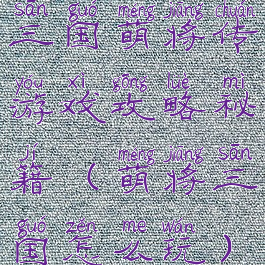 sān guó méng jiāng chuán
三国萌将传
yóu xì gōng lüè mì
游戏攻略秘
jí méng jiāng sān
籍（萌将三
guó zěn me wán
国怎么玩）